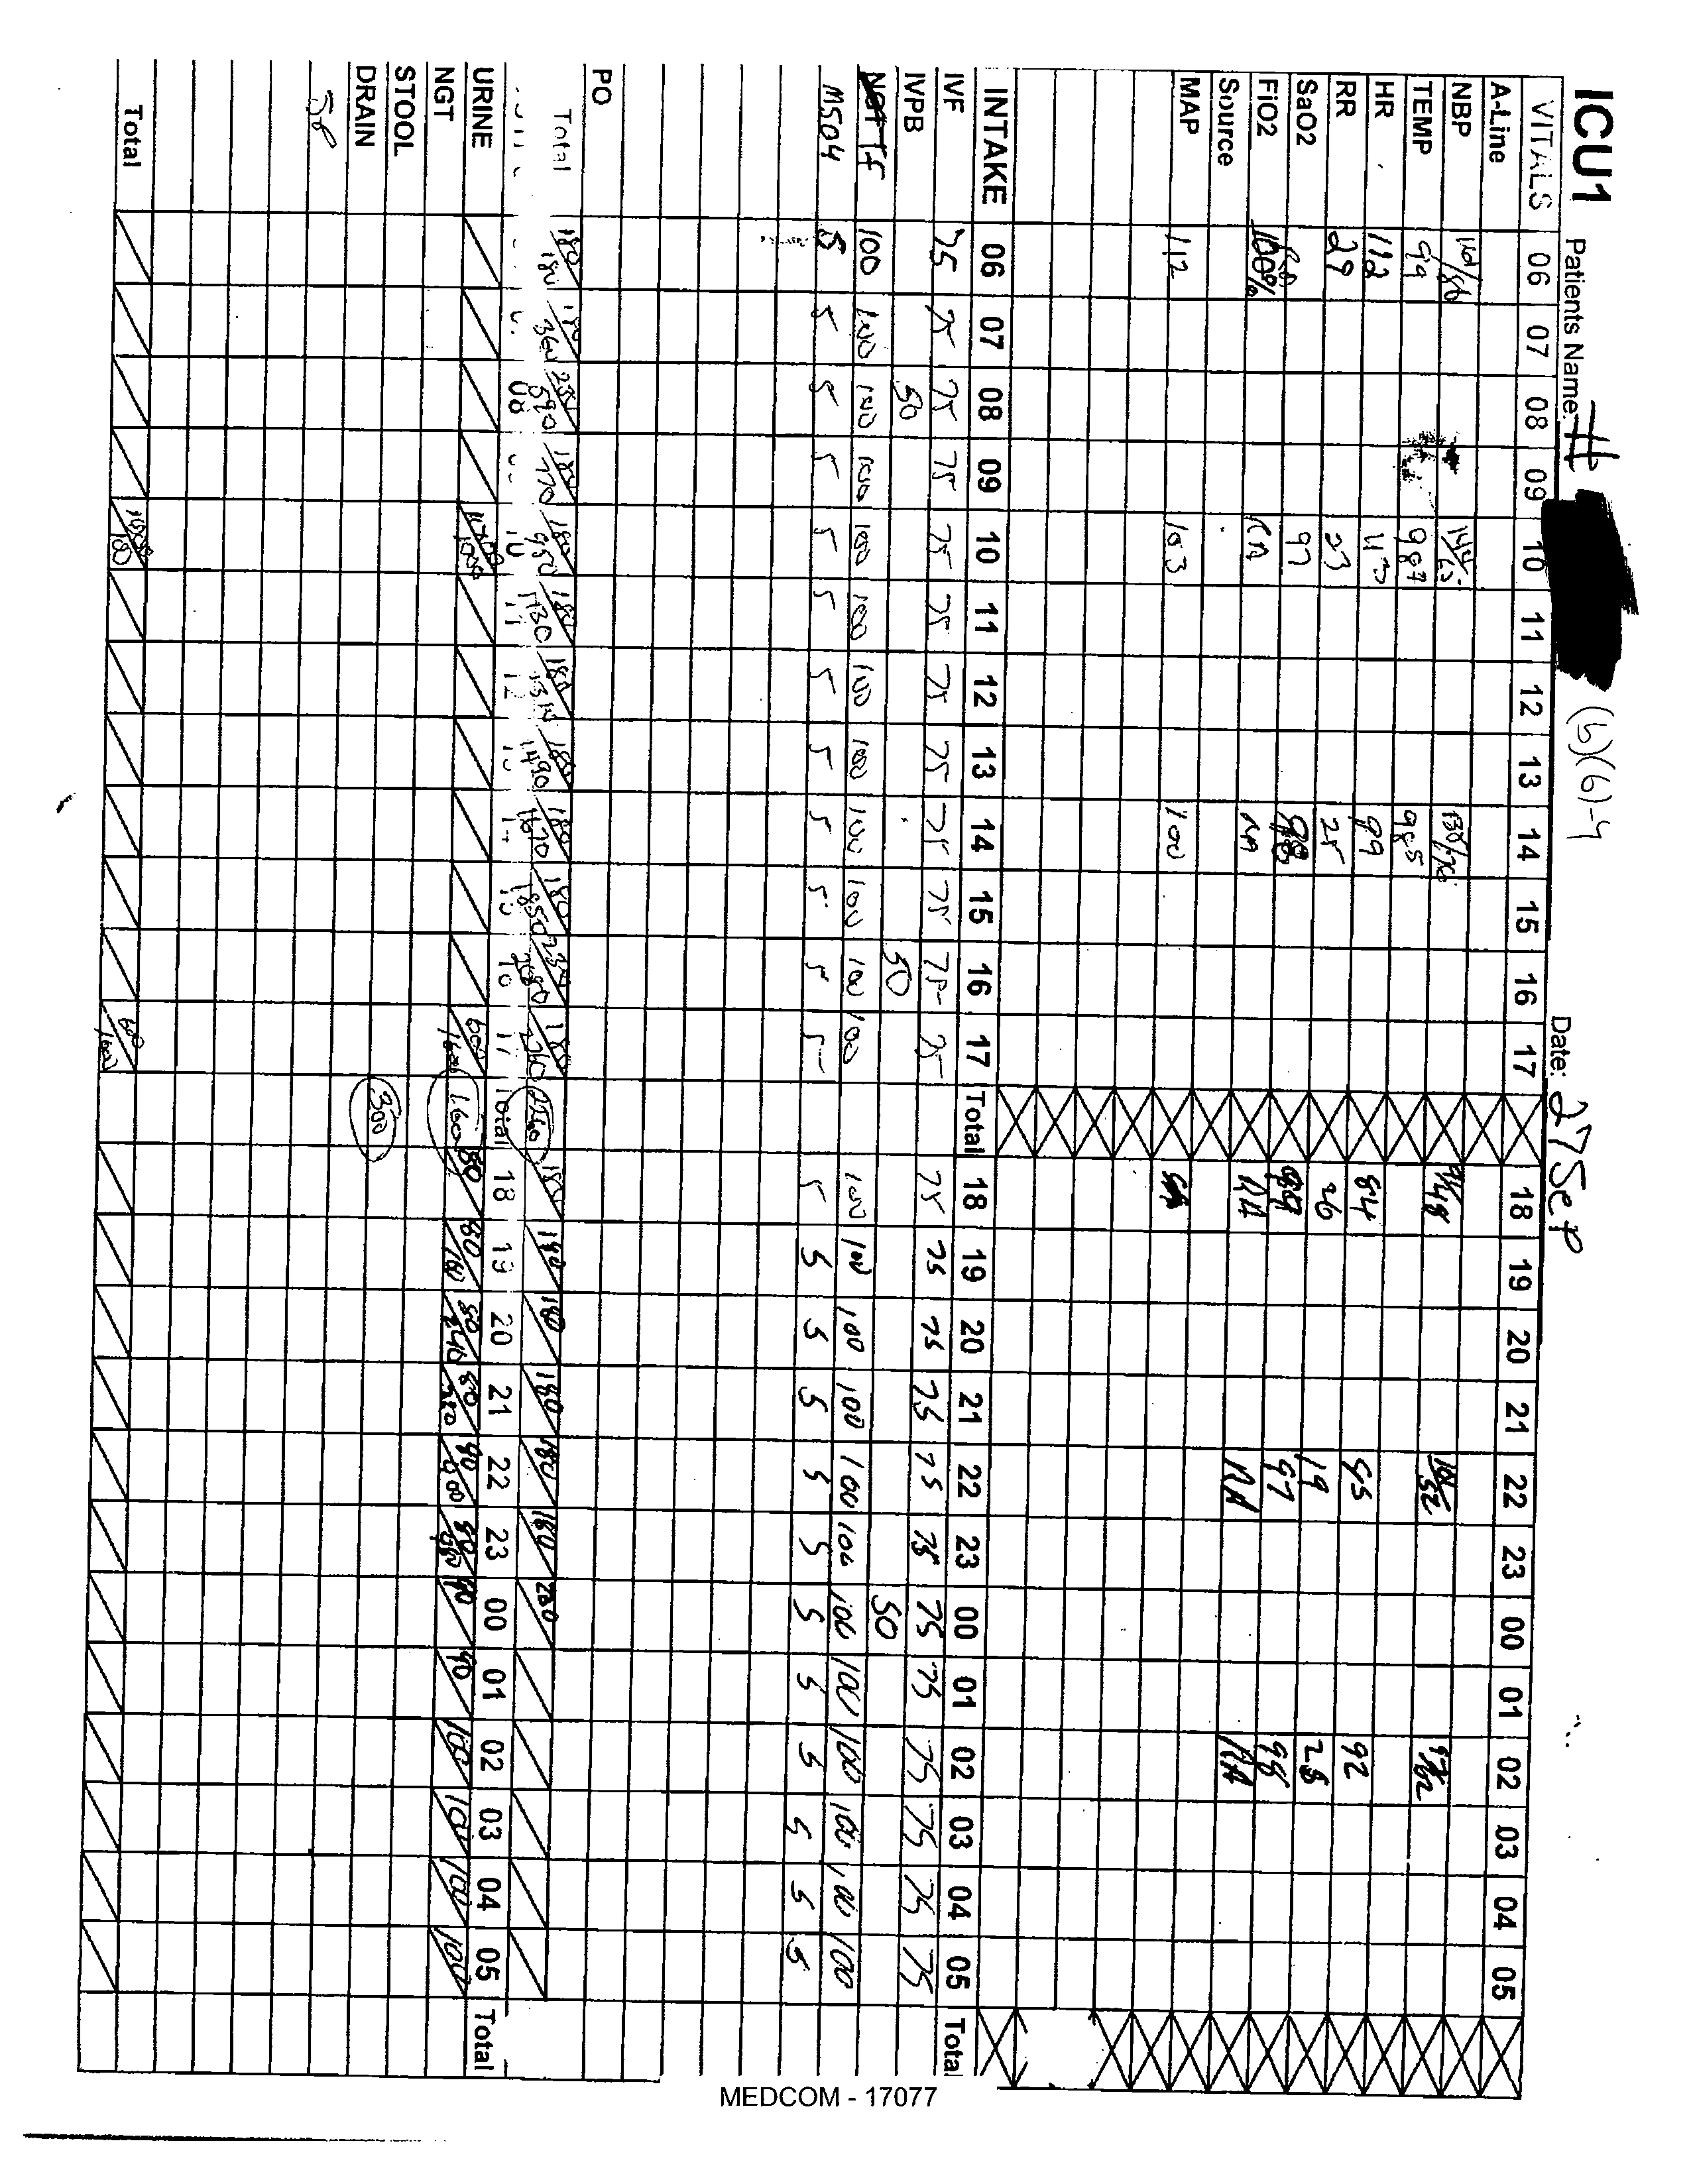 ICU1 Patients Name: # (b)(6)-4 Date: 27 Sep
VITALS 06 07 08 09 10 11 12 13 14 15 16 17 18 19 20 21 22 23 00 01 02 03 04 05
A-Line
NBP
TEMP 99 98.7 98.5
HR 112 113 99 84 95 92
RR 29 23 25 26 19 28
SaO2 97 98 98 97 98
FiO2 100% RA RA RA
Source RA RA
MAP 112 103 100
INTAKE 06 07 08 09 10 11 12 13 14 15 16 17 Total 18 19 20 21 22 23 00 01 02 03 04 05 Total
IVF 75 75 75 75 75 75 75 75 75 75 75 75 75 75 75 75 75 75 75 75 75 75 75 75
IVPB 50 50 50
TF 100 100 100 100 100 100 100 100 100 100 100 100 100 100 100 100 100 100 100 100 100 100 100 100
MSO4 5 5 5 5 5 5 5 5 5 5 5 5 5 5 5 5 5 5 5 5 5 5 5 5
PO
Total 180 180 180 360 230 590 180 770 180 950 180 1130 180 1310 180 1490 180 1670 180 1850 230 2080 180 2260 2260 180 180 180 180 180 180 230
08 10 11 12 17 Total 18 19 20 21 22 23 00 01 02 03 04 05 Total
URINE 1000 1000 600 1600 1600 80 80 160 80 240 80 80 90 90 100 100 100 100
NGT
STOOL
DRAIN 300
Total 600 1600
MEDCOM - 17077